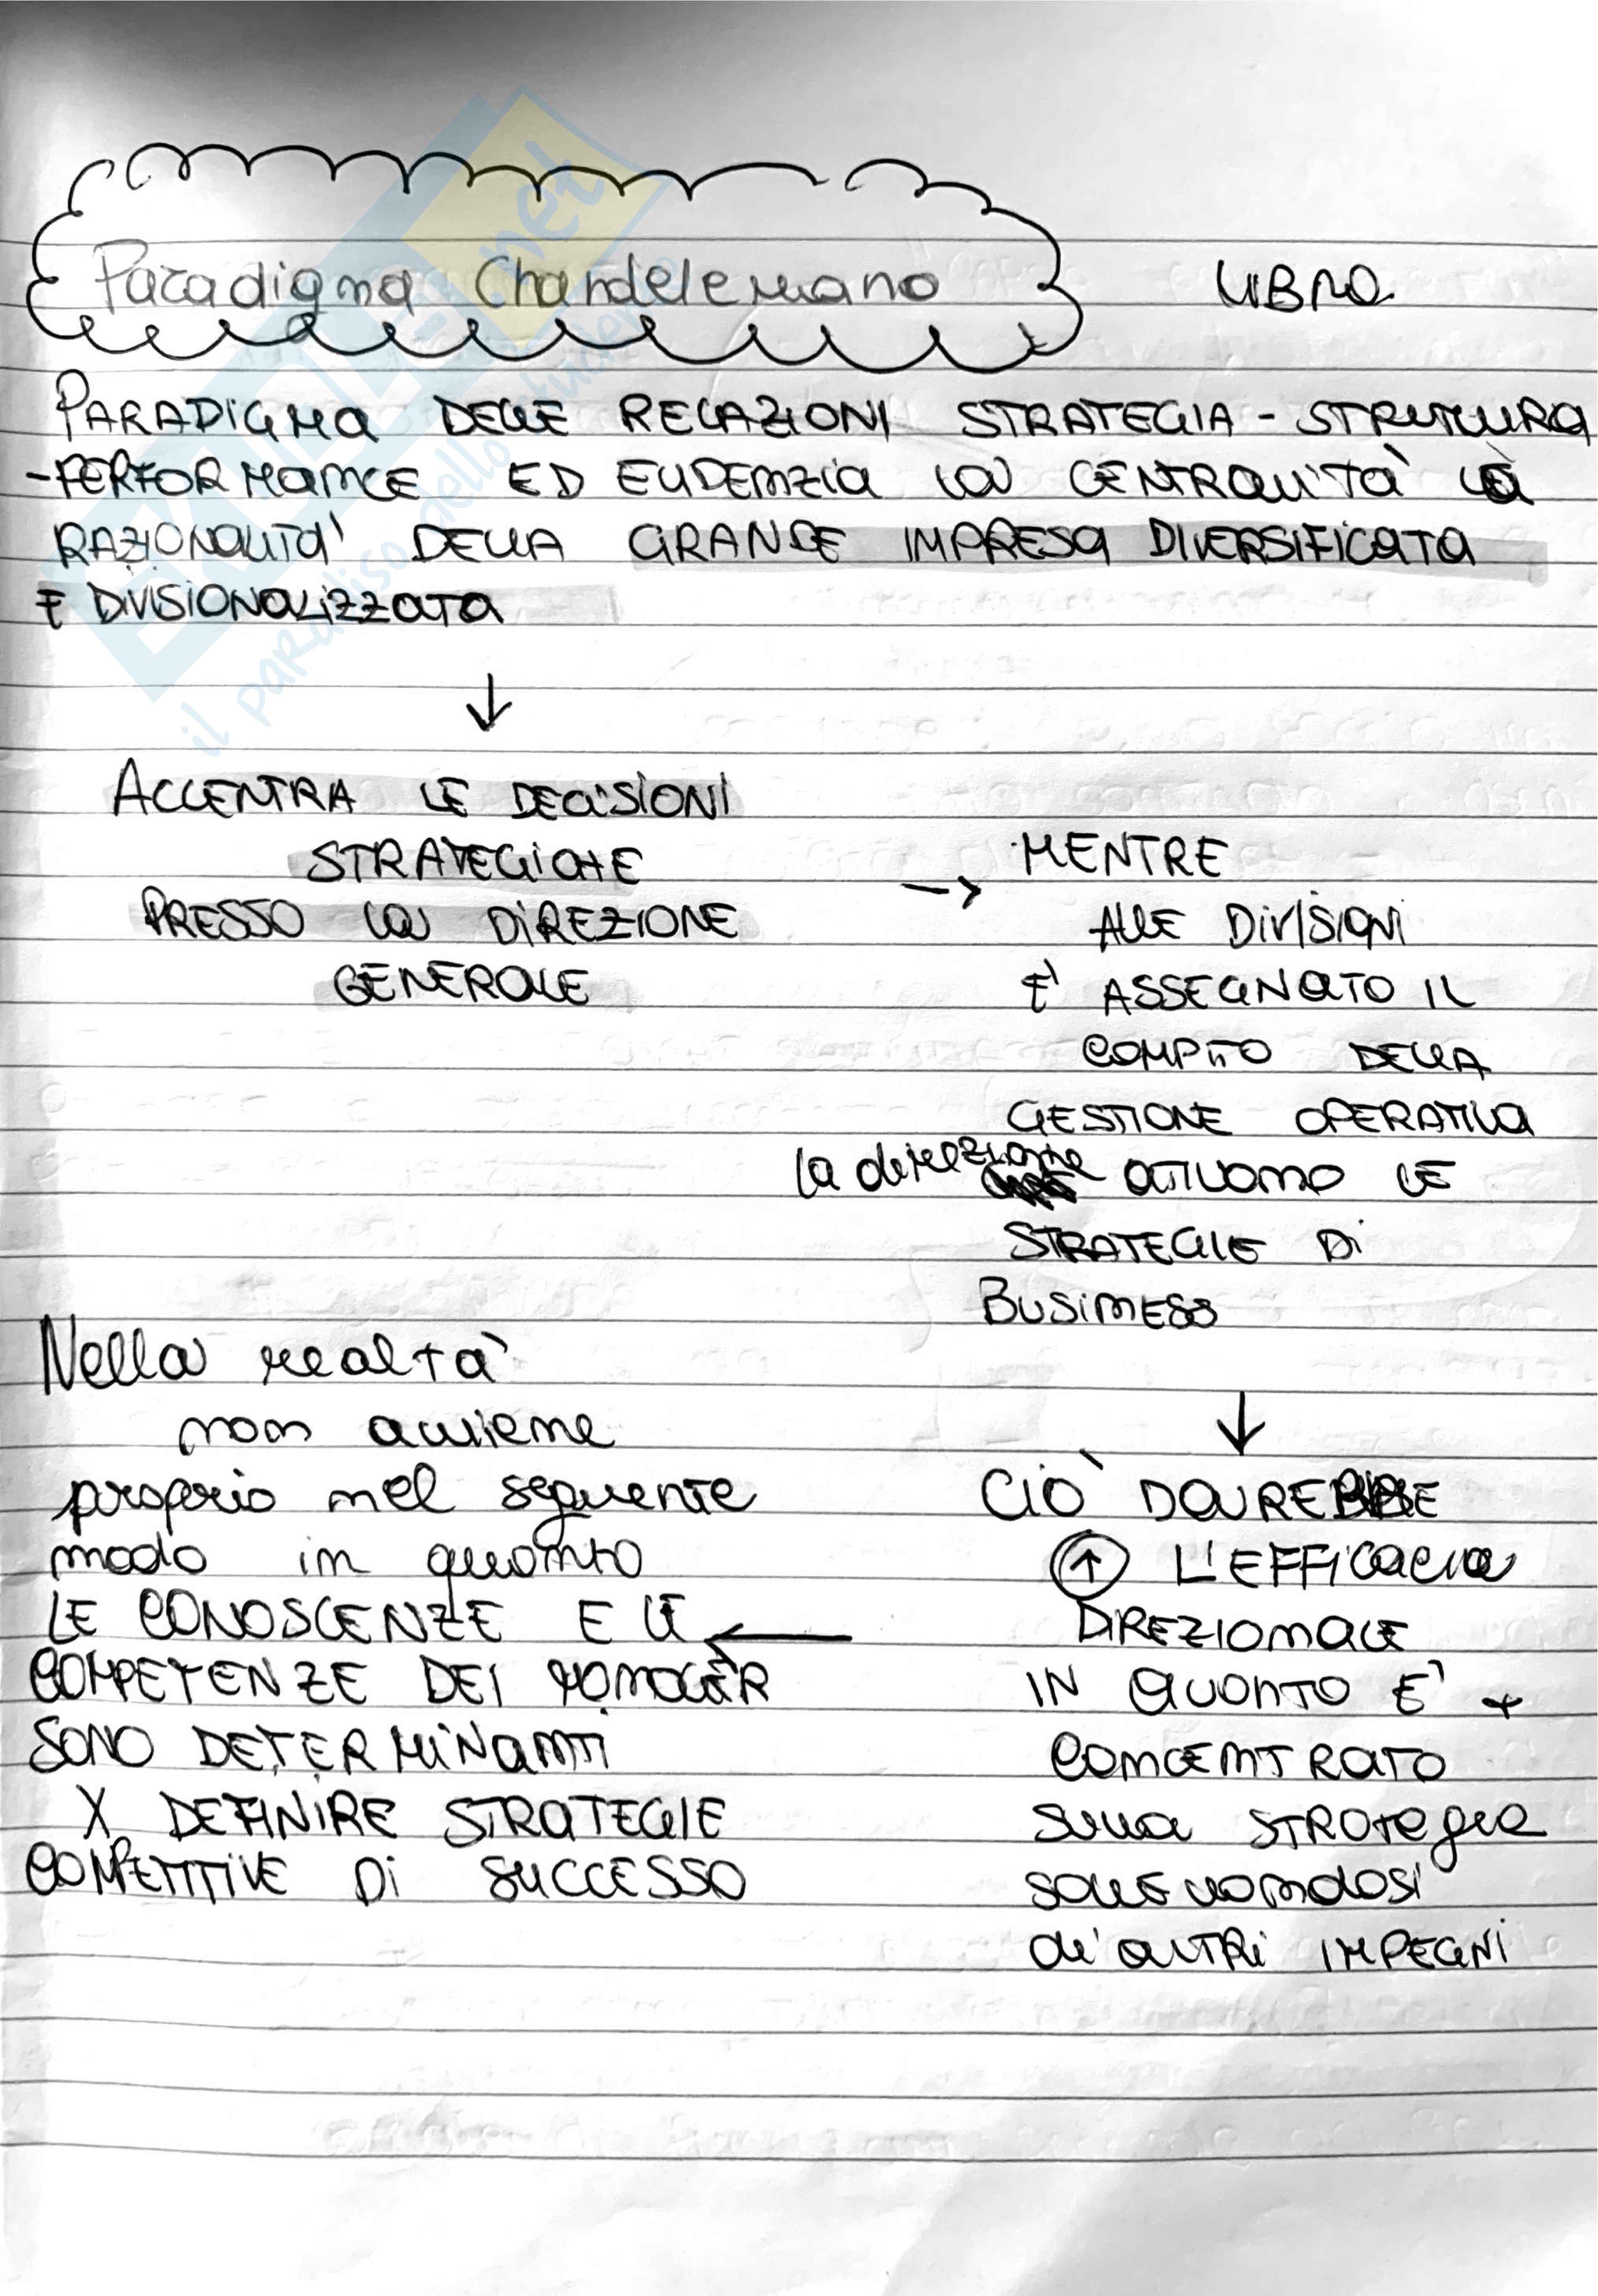 Paradigma Chandeleriano
LIBRO
PARADIGMA DELLE RELAZIONI STRATEGIA - STRUTTURA
- PERFORMANCE ED EVIDENZIA LA CENTRALITÀ LA
RAZIONALITA' DELLA GRANDE IMPRESA DIVERSIFICATA
E DIVISIONALIZZATA
↓
ACCENTRA LE DECISIONI
STRATEGICHE
PRESSO LA DIREZIONE
GENERALE
→ MENTRE
ALLE DIVISIONI
E' ASSEGNATO IL
COMPITO DELLA
GESTIONE OPERATIVA
la direzione ATTUANO LE
STRATEGIE DI
BUSINESS
↓
CIÒ DOVREBBE
↑ L'EFFICACIA
DIREZIONALE
IN QUANTO E' +
CONCENTRATO
SULLA STRATEGIA
SOLLEVANDOSI
DI ALTRI IMPEGNI
←
Nella realtà
non avviene
proprio nel seguente
modo in quanto
LE CONOSCENZE E LE
COMPETENZE DEI MANAGER
SONO DETERMINANTI
X DEFINIRE STRATEGIE
COMPETITIVE DI SUCCESSO
.net
il paradiso dello studente